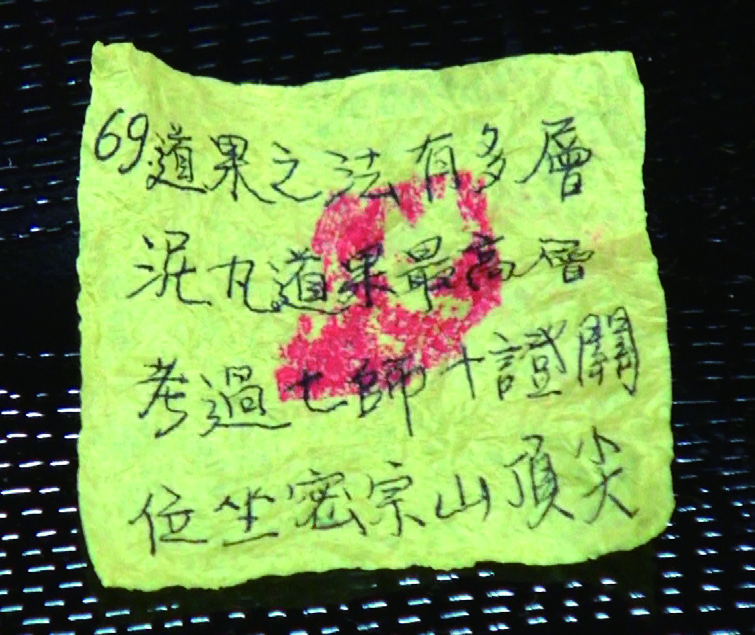 69道果之法有多層
泥丸道果最高層
考過七師十證關
位坐密宗山頂尖